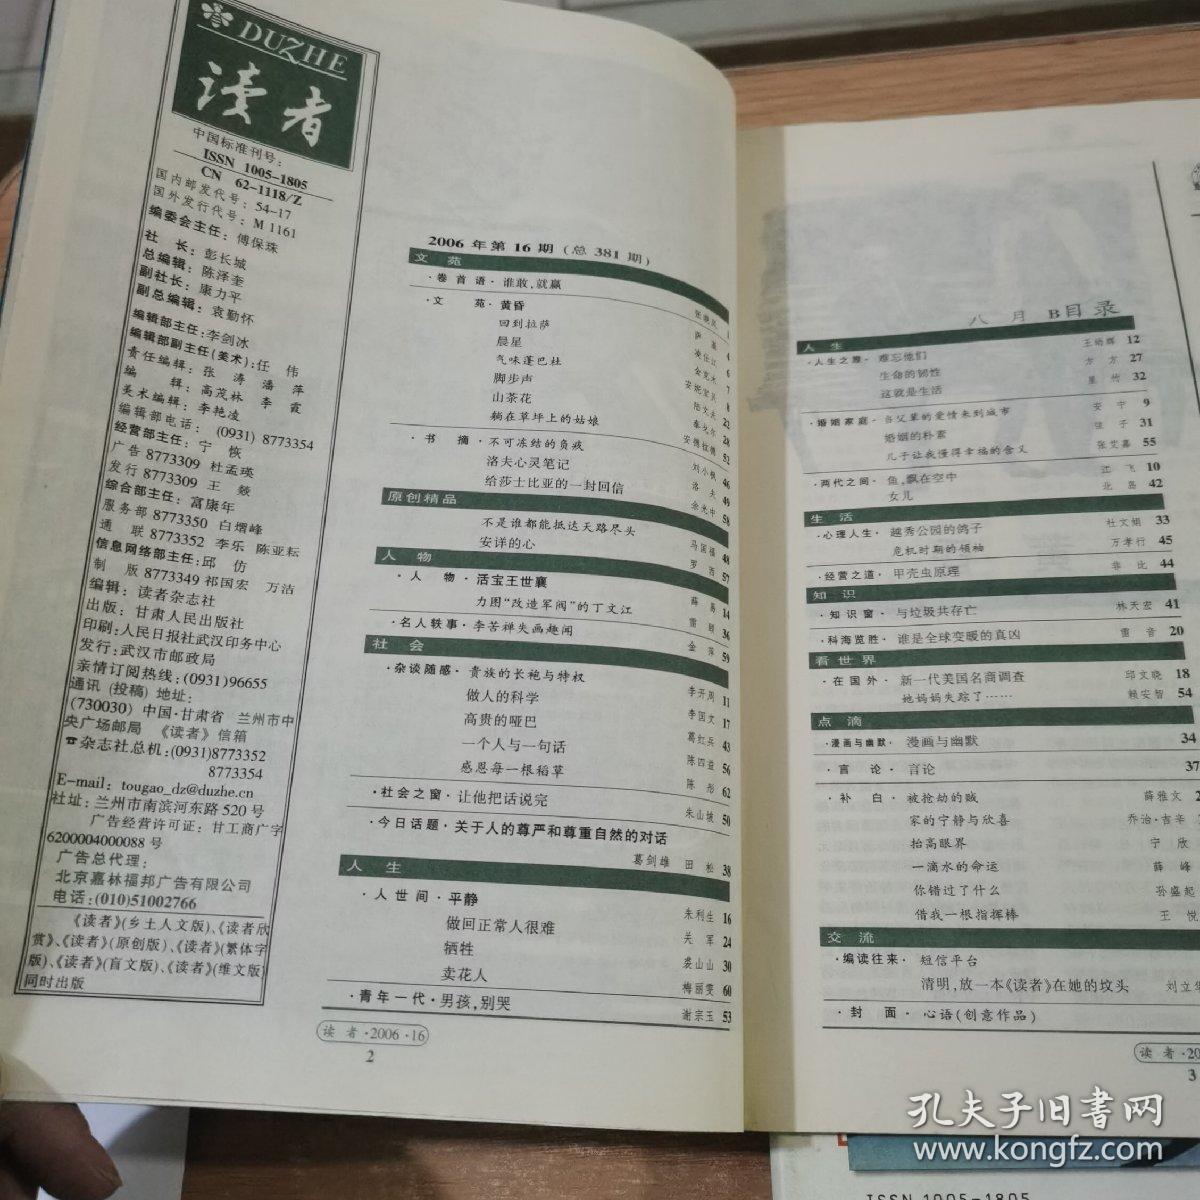 DUZHE
读者
中国标准刊号：
ISSN 1005-1805
CN 62-1118/Z
国内邮发代号：54-17
国外发行代号：M 1161
编委会主任：傅保珠
社 长：彭长城
总编辑：陈泽奎
副社长：康力平
副总编辑：袁勤怀
编辑部主任：李剑冰
编辑部副主任(美术)：任 伟
责任编辑：张 涛 潘 萍
编 辑：高茂林 李 霞
美术编辑：李艳凌
编辑部电话：(0931) 8773354
经营部主任：宁 恢
广告 8773309 杜孟瑛
发行 8773309 王 燚
综合部主任：富康年
服务部 8773350 白熠峰
通 联 8773352 李乐 陈亚耘
信息网络部主任：邱 仿
制 版 8773349 祁国宏 万洁
编辑：读者杂志社
出版：甘肃人民出版社
印刷：人民日报社武汉印务中心
发行：武汉市邮政局
亲情订阅热线：(0931)96655
通讯 (投稿) 地址：
(730030) 中国·甘肃省 兰州市中
央广场邮局 《读者》信箱
☎杂志社总机：(0931)8773352
8773354
E-mail：tougao_dz@duzhe.cn
社址：兰州市南滨河东路 520 号
广告经营许可证：甘工商广字
6200004000088 号
广告总代理：
北京嘉林福邦广告有限公司
电话：(010)51002766
《读者》(乡土人文版)、《读者欣
赏》、《读者》(原创版)、《读者》(繁体字
版)、《读者》(盲文版)、《读者》(维文版)
同时出版
2006 年第 16 期 (总 381 期)
文 苑
·卷 首 语·谁敢,就赢 张晓风 1
·文 苑·黄昏
回到拉萨
晨星 凌仕江 6
气味蓬巴杜 金宽木 7
脚步声 8
山茶花 陆文夫 22
躺在草坪上的姑娘 泰戈尔 28
·书 摘·不可冻结的负疚 刘小枫 46
洛夫心灵笔记 洛 夫 49
给莎士比亚的一封回信 余光中 58
原创精品
不是谁都能抵达天路尽头 马国福 48
安详的心 罗 西 57
人 物
·人 物·活宝王世襄 薛 易 14
力图“改造军阀”的丁文江 雷 颐 36
·名人轶事·李苦禅失画趣闻 金 萍 59
社 会
·杂谈随感·贵族的长袍与特权 李开周 11
做人的科学 李国文 17
高贵的哑巴 葛红兵 43
一个人与一句话 陈四益 56
感恩每一根稻草 陈 彤 62
·社会之窗·让他把话说完 朱山坡 50
·今日话题·关于人的尊严和尊重自然的对话
葛剑雄 田 松 38
人 生
·人世间·平静 朱利生 16
做回正常人很难 关 军 24
牺牲 裘山山 30
卖花人 梅丽雯 60
·青年一代·男孩,别哭 谢宗玉 53
读 者·2006·16
2
八 月 B目录
人 生
·人生之旅·难忘他们 12
生命的韧性 方 方 27
这就是生活 星 竹 32
·婚姻家庭·当父辈的爱情来到城市 安 宁 9
婚姻的朴素 弦 子 31
儿子让我懂得幸福的含义 张艾嘉 55
·两代之间·鱼,飘在空中 江 飞 10
女儿 北 岛 42
生 活
·心理人生·越秀公园的鸽子 杜文娟 33
危机时期的领袖 万孝行 45
·经营之道·甲壳虫原理 菲 比 44
知 识
·知识窗·与垃圾共存亡 林天宏 41
·科海览胜·谁是全球变暖的真凶 雷 音 20
看世界
·在国外·新一代美国名商调查 邱文晓 18
她妈妈失踪了…… 赖安智 54
点 滴
·漫画与幽默·漫画与幽默 34
·言 论·言论 37
·补 白·被抢劫的贼 薛雅文
家的宁静与欣喜 乔治·吉辛
抬高眼界 宁 欣
一滴水的命运 薛 峰
你错过了什么 孙盛起
借我一根指挥棒 王 悦
交 流
·编读往来·短信平台
清明,放一本《读者》在她的坟头 刘立
·封 面·心语(创意作品)
读 者·20
3
ISSN 1005-1805
孔夫子旧书网
www.kongfz.com